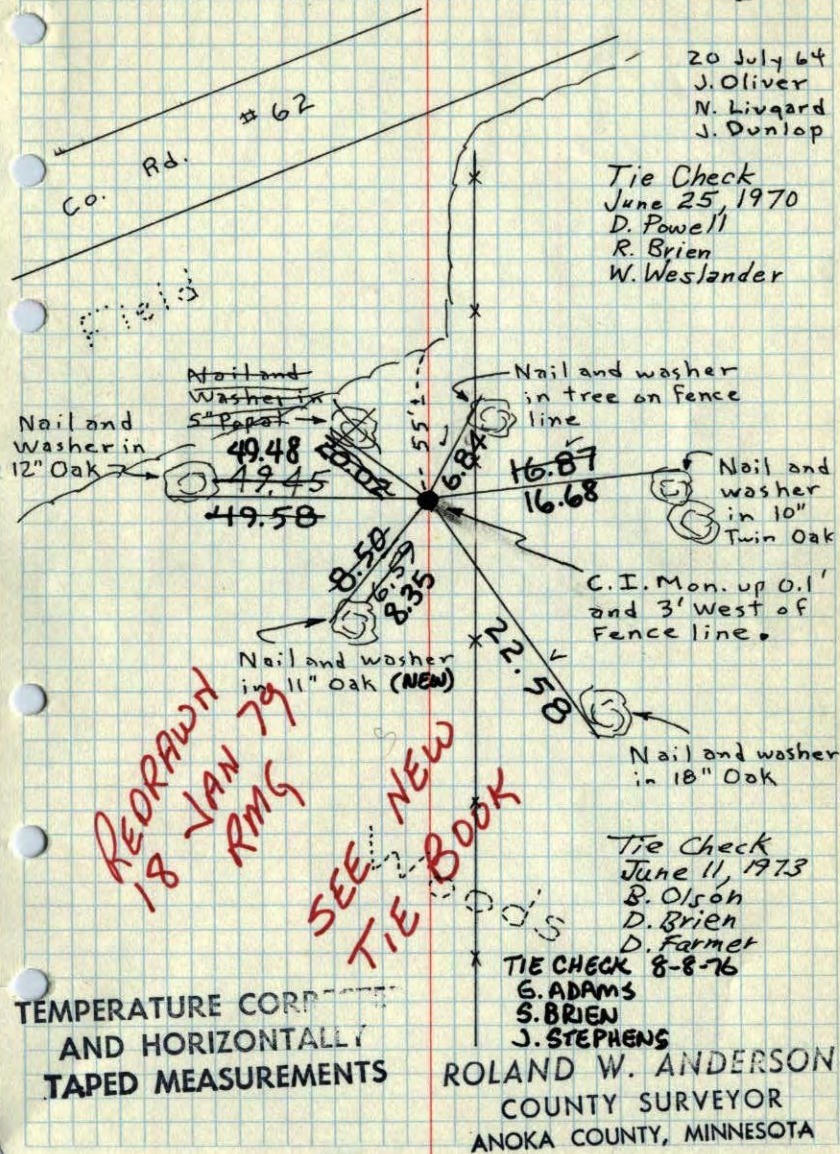 20 July 64
J. Oliver
N. Livgard
J. Dunlop
Co. Rd. # 62
Tie Check
June 25, 1970
D. Powell
R. Brien
W. Weslander
Field
Nail and
Washer in
5" Popal
Nail and washer
in tree on Fence
line
Nail and
Washer in
12" Oak
49.48
49.45
49.58
20.02
55'±
6.84
16.87
16.68
Nail and
washer
in 10"
Twin Oak
8.50
6.59
8.35
C.I. Mon. up 0.1'
and 3' West of
Fence line.
22.58
Nail and washer
in 11" Oak (NEW)
Nail and washer
in 18" Oak
REDRAWN
18 JAN 79
RMG
SEE NEW
TIE BOOK
Woods
Tie Check
June 11, 1973
B. Olson
D. Brien
D. Farmer
TIE CHECK 8-8-76
G. ADAMS
S. BRIEN
J. STEPHENS
TEMPERATURE CORRECTED
AND HORIZONTALLY
TAPED MEASUREMENTS
ROLAND W. ANDERSON
COUNTY SURVEYOR
ANOKA COUNTY, MINNESOTA